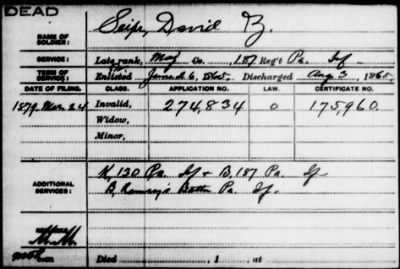 DEAD
NAME OF SOLDIER: Seip, David Z.
SERVICE: Late rank, Maj Co. , 187 Reg't Pa. Inf.
TERM OF SERVICE: Enlisted June 6, 1865. Discharged Aug 3, 1865.
DATE OF FILING. CLASS. APPLICATION NO. LAW. CERTIFICATE NO.
1879. Mar. 24 Invalid, 274,834 0 175,960
Widow,
Minor,
ADDITIONAL SERVICES:
K, 130 Pa. Inf + B, 187 Pa. Inf
B, Ramsey's Battn Pa. Inf.
Died , 1 , at